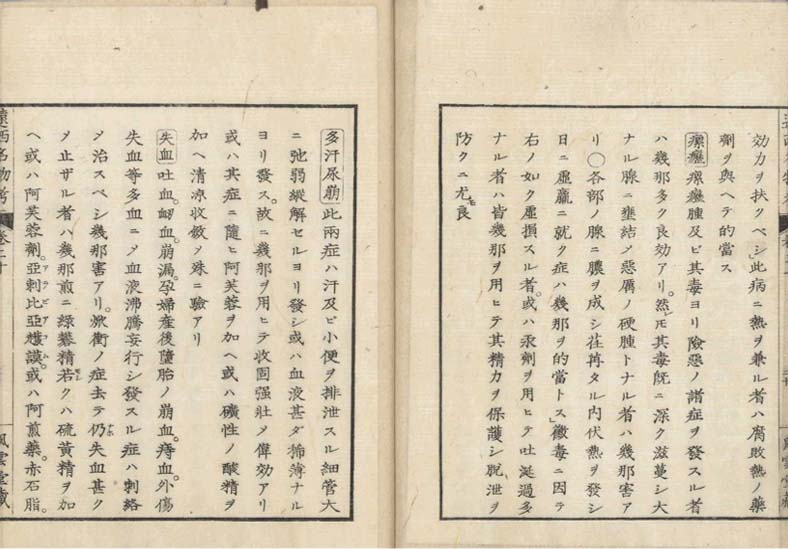 効力ヲ扶クベシ」此病ニ熱ヲ兼ル者ハ腐敗熱ノ藥
劑ヲ與ヘテ的當ス
瘰癧瘰癧腫及ビ其毒ヨリ險惡ノ諸症ヲ發スル者
ハ幾那多ク良効アリ。然レ𪜈其毒既ニ深ク滋蔓シ大
ナル腺ニ壅結ノ惡厲ノ硬腫トナル者ハ幾那害ア
リ〇各部ノ腺ニ膿ヲ成シ荏苒タル内伏熱ヲ發シ
日ニ虚羸ニ就ク症ハ幾那ヲ的當トス」黴毒ニ因テ
右ノ如ク虚損スル者。或ハ汞劑ヲ用ヒテ吐涎過多
ナル者ハ皆幾那ヲ用ヒテ其精力ヲ保護シ脱泄ヲ
防クニ尤モ良
多汗尿崩此兩症ハ汗及ビ小便ヲ排泄スル細管大
ニ弛弱縱解セルヨリ發シ或ハ血液甚ダ稀薄ナル
ヨリ發ス。故ニ幾那ヲ用ヒテ收固强壯ノ偉効アリ
或ハ其症ニ隨ヒ阿芙蓉ヲ加ヘ或ハ礦性ノ酸精ヲ
加ヘ清凉收斂ノ殊ニ驗アリ
失血吐血。衂血。崩漏。孕婦産後墮胎ノ崩血。痔血。外傷
失血等多血ニメ血液沸騰妄行シ發スル症ハ刺絡
メ治スベシ幾那害アリ。焮衝ノ症去テ仍ナホ失血甚ク
メ止ザル者ハ幾那煎ニ綠礬精若モシクハ硫黄精ヲ加
ヘ或ハ阿芙蓉劑。亞刺比亞護謨アラビアゴム。或ハ阿煎藥。赤石脂。
遠西名物考
卷二十
風雲堂藏